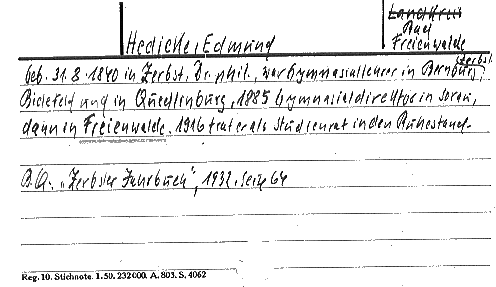 Landkreis
Bad
Freienwalde
Hedicke, Edmund
geb. 31.8.1840 in Zerbst, Dr. phil., war Gymnasiallehrer in Bernburg, Zerbst,
Bielefeld und in Quedlinburg, 1885 Gymnasialdirektor in Sorau,
dann in Freienwalde, 1916 trat er als Studienrat in den Ruhestand.
B.Q. „Zerbster Jahrbuch", 1932. Seite 64
Reg. 10. Stichnote. 1. 50. 232000. A. 803. S. 4062